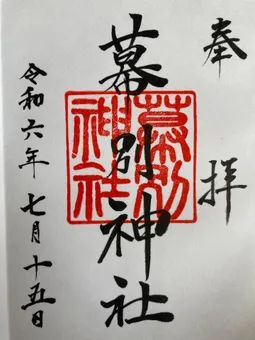 奉拝
幕別神社
幕別神社
令和六年七月十五日